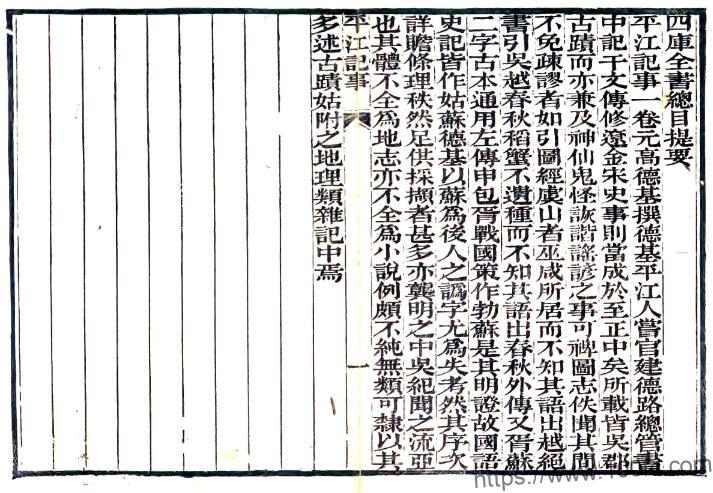 四庫全書總目提要
平江記事一卷元高德基撰德基平江人嘗官建德路總管書
中記干文傳修遼金宋史事則當成於至正中矣所載皆吳郡
古蹟而亦兼及神仙鬼怪詼諧謡諺之事可裨圖志佚聞其間
不免疎謬者如引圖經虞山者巫咸所居而不知其語出越絕
書引吳越春秋稻蟹不遺種而不知其語出春秋外傳又胥蘇
二字古本通用左傳申包胥戰國策作勃蘇是其明證故國語
史記皆作姑蘇德基以蘇為後人之譌字尤為失考然其序次
詳贍條理秩然足供採擷者甚多亦龔明之中吳紀聞之流亞
也其體不全為地志亦不全為小說例頗不純無類可隸以其
平江記事 一
多述古蹟姑附之地理類雜記中焉